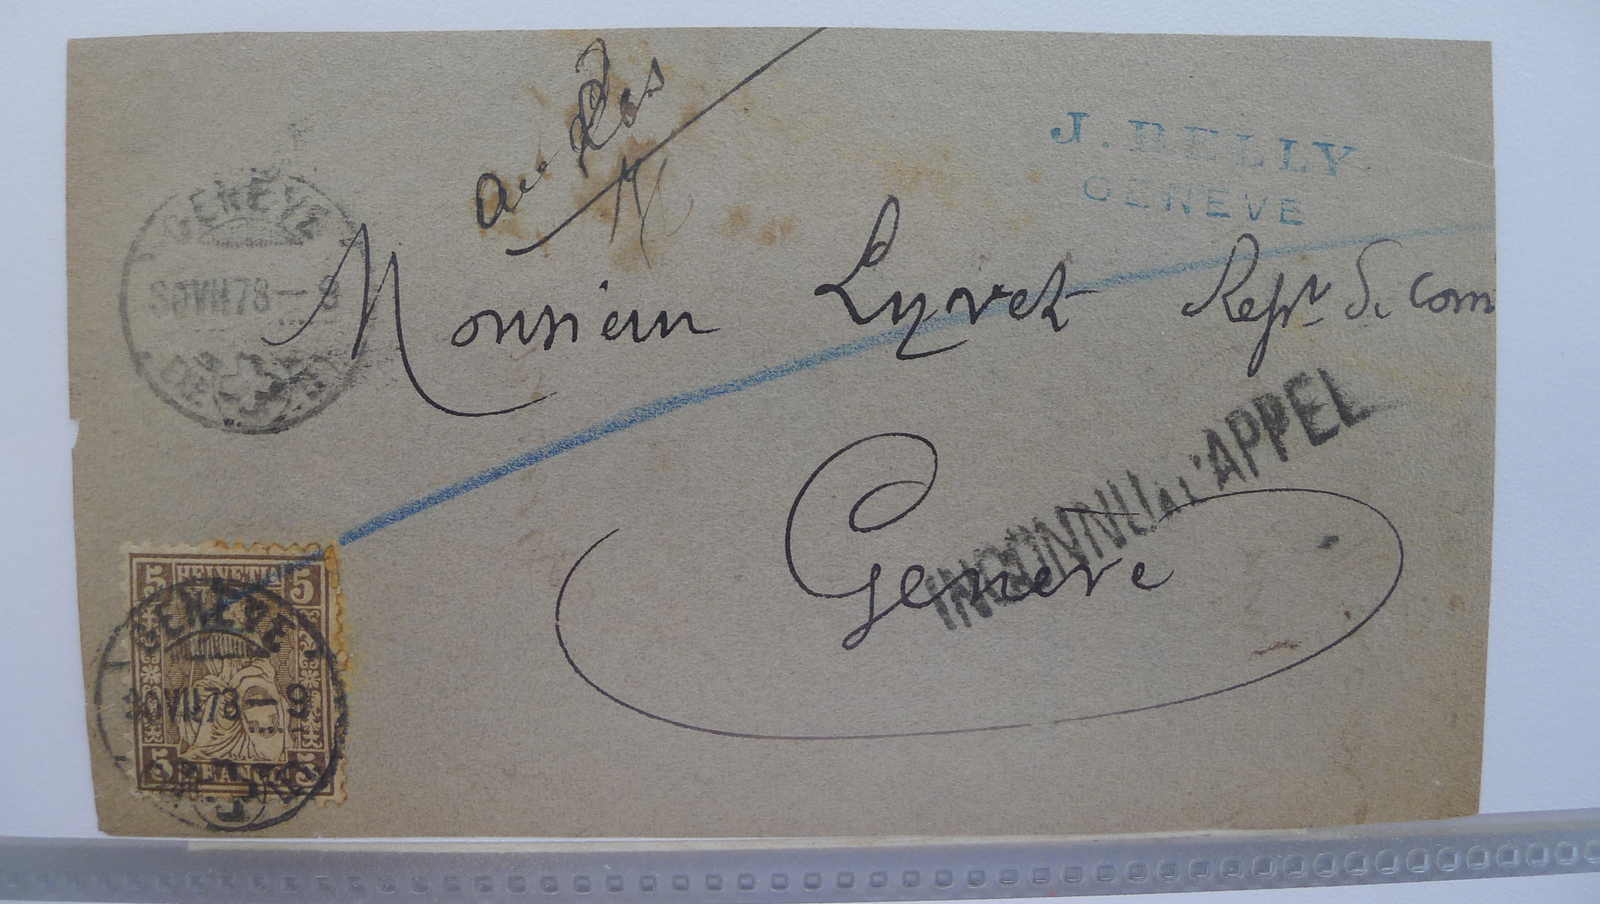 au dos
J. BELLY
GENEVE
GENEVE
30 VII 78 — 9
Monsieur Lyvet Repr. de Com
INCONNU À L'APPEL
Genève
5 HELVETIA 5
GENEVE
30 VII 78 — 9
5 FRANCO 5